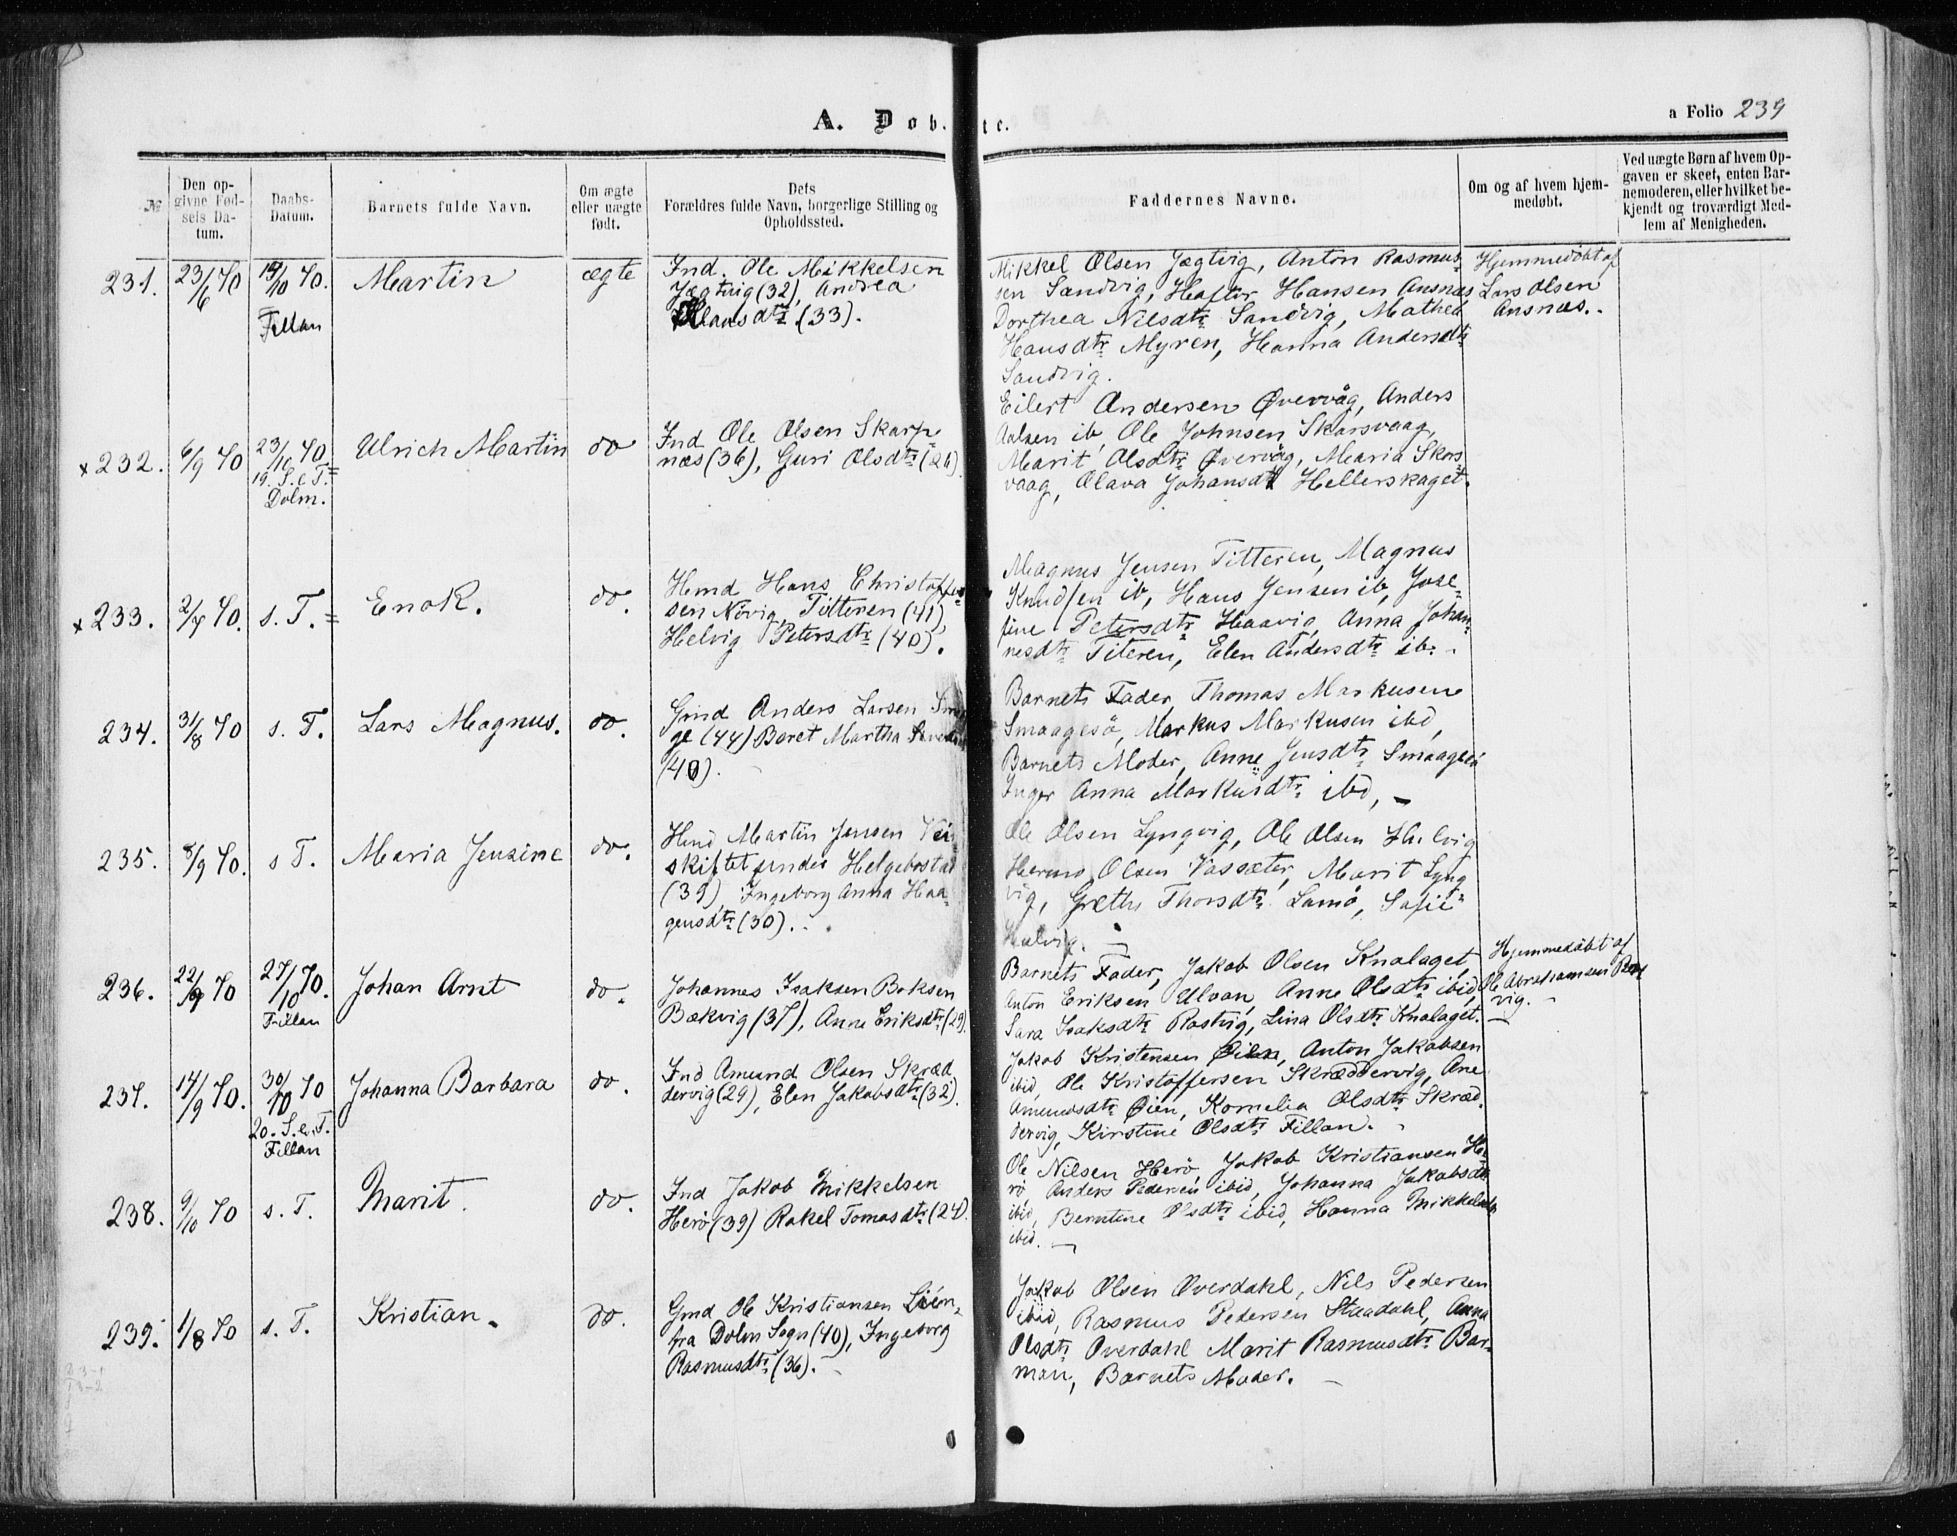 A. Døb. tc.
a Folio 239
№
Den op-
givne Fød-
sels Da-
tum.
Daabs-
Datum.
Barnets fulde Navn.
Om ægte
eller uægte
født.
Dets
Forældres fulde Navn, borgerlige Stilling og
Opholdssted.
Faddernes Navne.
Om og af hvem hjem-
medøbt.
Ved uægte Børn af hvem Op-
gaven er skeet, enten Bar-
nemoderen, eller hvilket be-
kjendt og troværdigt Med-
lem af Menigheden.
231.
23/6 70
/10 70.
Fillan
Martin
ægte
Ind. Ole Mikkelsen
Jægtvig (32), Andrea
Klausdtr (33).
Mikkel Olsen Jægtvig, Anton Rasmus-
sen Sandvig, Haftor Hansen Ansnæs
Dorthea Nilsdtr Sandvig, Mathea
Hansdtr Myren, Hanna Andersdtr
Sandvig.
Hjemmedøbt af
Lars Olsen
Ansnæs.
x 232.
6/9 70
23/10 70
19. S. e. T.
Dolm.
Ulrich Martin
do
Ind Ole Olsen Skarp-
næs (36), Guri Olsdtr (26)
Eilert Andersen Øvervåg, Anders
ib, Ole Johnsen Skarsvaag,
Marit Olsdtr Øvervåg, Maria Skars-
vaag, Olava Johansdt Hellerskaget.
x 233.
2/7 70.
s. T.
Enok.
do.
Hmd Hans Christoffer-
sen Nøvig Titteren (41),
Helvig Petersdtr (40).
Magnus Jensen Titteren, Magnus
Knudsen ib, Hans Jensen ib, Jose-
fine Petersdtr Haavig, Anna Johan-
nesdtr Titeren, Elen Andersdtr ib.
234.
31/8 70
s. T.
Lars Magnus.
do.
Gmd Anders Larsen
ge (44) Beret Martha
(40).
Barnets Fader, Thomas Markusen
Smaagesø, Markus Markusen ibd,
Barnets Moder, Anne Jensdtr Smaagesø
Inger Anna Markusdtr ibd,
235.
8/9 70.
s T.
Maria Jensine
do.
Hmd Martin Jensen
skiftet under Helgebostad
(39), Ingeborg Anna Haa-
gensdtr (30).
Ole Olsen Lyngvig, Ole Olsen Hælvig
Olsen Vassæter, Marit Lyng-
vig, Grethe Thorsdtr Lamø, Sofie
Hælvig.
236.
22/9 70
27/10 70.
Fillan
Johan Arnt
do.
Johannes Isaksen Boksen
Bækvig (37), Anne Eriksdtr (29)
Barnets Fader, Jakob Olsen Knalaget,
Anton Eriksen Ulvan, Anne Olsdtr ibid,
Sara Isaksdtr Rastvig, Lina Olsdtr Knalaget.
Hjemmedøbt af
Ole Abrahamsen
vig.
237.
14/9 70.
30/10 70
20. S. e. T.
Fillan
Johanna Barbara
do.
Ind Amund Olsen Skræd
dervig (29), Elen Jakobsdtr (32).
Jakob Kristensen Øien, Anton Jakobsen
ibid, Ole Kristoffersen Skræddervig, Ane
Amundsdtr Øien, Kornelia Olsdtr Skræd-
dervig, Kirstine Olsdtr Fillan.
238.
9/10 70
s. T.
Marit.
do.
Ind Jakob Mikkelsen
Herø (39) Rakel Tomasdtr (24)
Ole Nilsen Herø, Jakob Kristiansen He-
rø, Anders Pedersen ibid, Johanna Jakobsdtr
ibid, Berntine Olsdtr ibid, Hanna Mikkelsdtr
ibid.
239.
1/8 70
s. T.
Kristian.
do.
Gmd Ole Kristiansen
fra Dolm Sogn (40), Ingeborg
Rasmusdtr (36).
Jakob Olsen Overdahl, Nils Pedersen
ibid, Rasmus Pedersen Staudahl, Anna
Olsdtr Overdahl Marit Rasmusdtr Bar-
man, Barnets Moder.